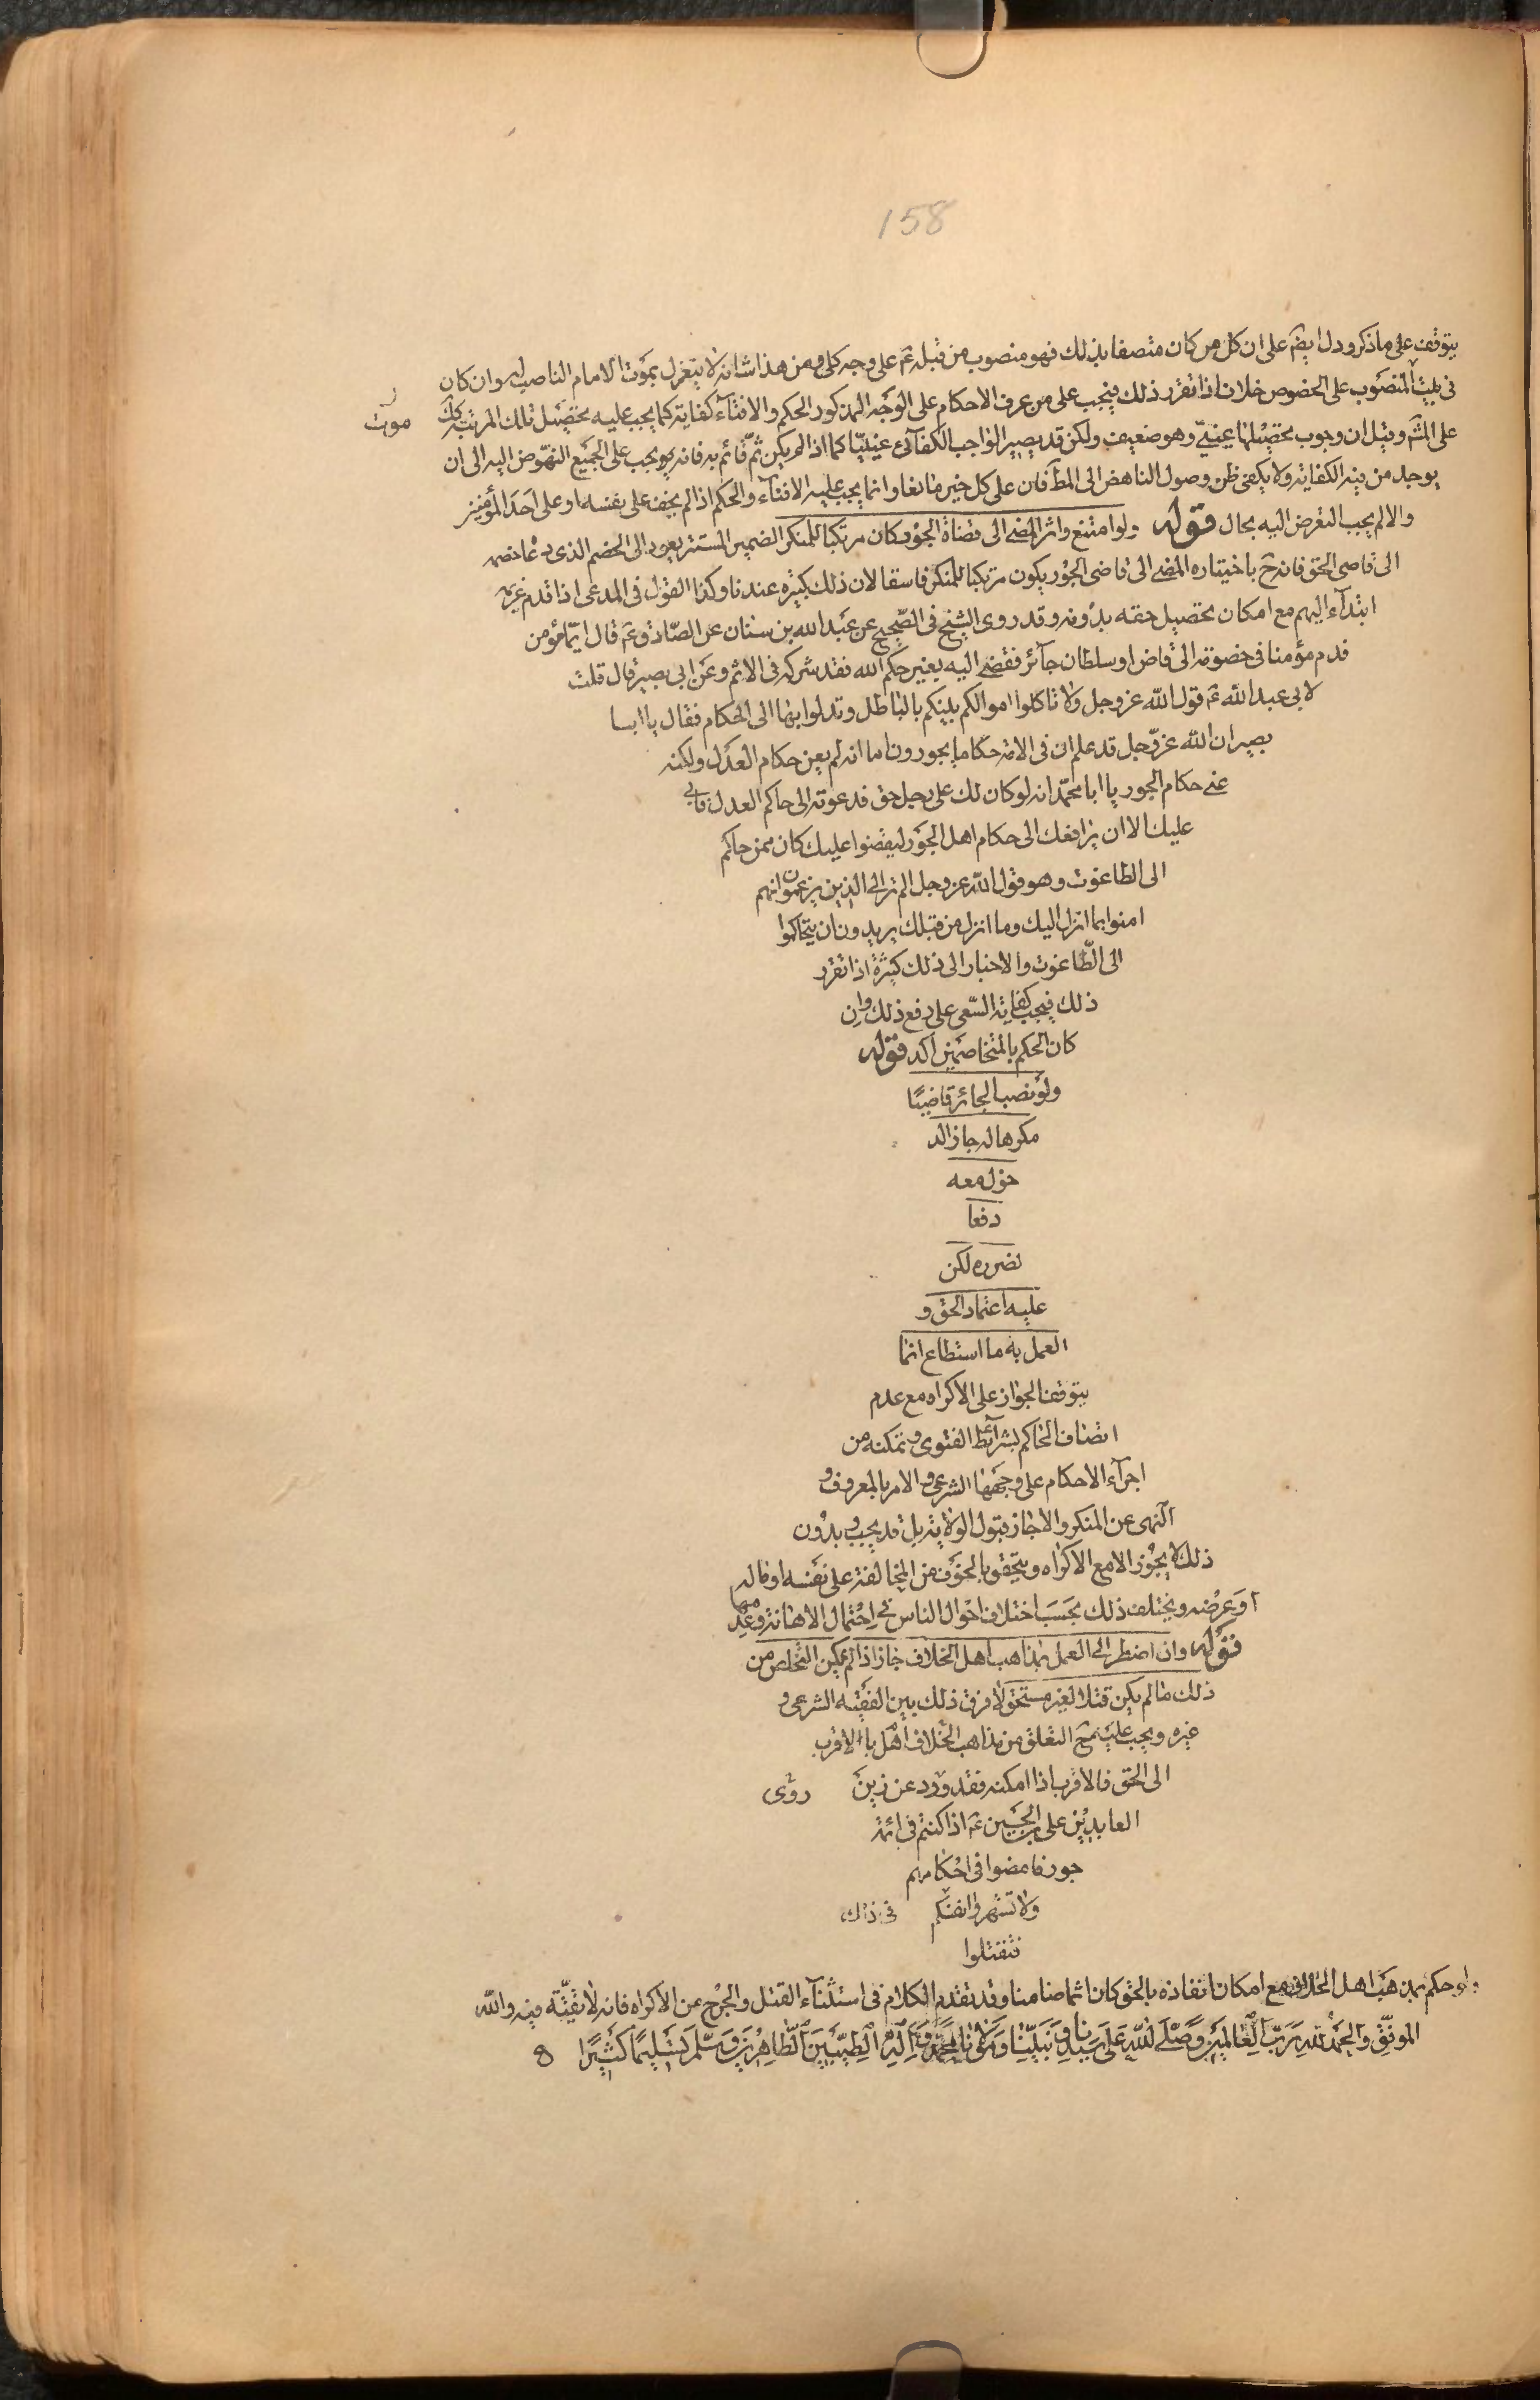 158
يتوقف على ما ذكر ودل ايضم على ان كل من كان متصفا بذلك فهو منصوب من قبله عم على وجه كلى ومن هذا شانه لا يتغزل بموت الامام الناصب له وان كان
فى المنصوب على الخصوص خلاف اذا تقرر ذلك فيجب على من عرف الاحكام على الوجه المذكور الحكم والافتاء كفاية كما يجب عليه تحصيل تلك المرتبة كك
موت
على المشم وقيل ان وجوب تحصيلها عينىّ وهو ضعيف ولكن قد يصير الواجب الكفائى عينيّا كما اذا لم يكن ثمّ قائم به فانه يجب على الجميع النهوض اليه الى ان
يوجد من فيه الكفاية ولا يكفى ظن وصول الناهض الى المط فان على كل خير مانعا وانما يجب عليه الافتاء والحكم اذا لم يخف على نفسه او على احد المؤمنين
والا لم يجب التعرض اليه بحال قوله ولو امتنع واثر المضى الى قضاة الجور كان مرتكبا للمنكر الضمير المستتر يعود الى الخصم الذى دعا خصمه
الى قاضى الحق فانه ح باختياره المضى الى قاضى الجور يكون مرتكبا للمنكر فاسقا لان ذلك كبيره عندنا وكذا القول فى المدعى اذا قدم غريمه
ابتداء اليهم مع امكان تحصيل حقه بدونه وقد روى الشيخ فى الصحيح عن عبد الله بن سنان عن الصّادق عم قال ايّما مؤمن
قدم مؤمنا فى خصوته الى قاض او سلطان جائر فقضى اليه بغير حكم الله فقد شركه فى الاثم وعن ابى بصير قال قلت
لابى عبد الله عم قول الله عز وجل ولا تاكلوا اموالكم بينكم بالباطل وتدلوا بها الى الحكام فقال يا ابا
بصير ان الله عزّ وجل قد علم ان فى الامة حكاما يجورون اما انه لم يعن حكام العدل ولكنه
عنى حكام الجور يا ابا محمّد انه لو كان لك على رجل حق فدعوته الى حاكم العدل فابى
عليك الا ان يرافعك الى حكام اهل الجور ليقضوا عليك كان ممن حاكم
الى الطاغوت وهو قول الله عز وجل الم تر الى الذين يزعمون انهم
امنوا بما انزل اليك وما انزل من قبلك يريدون ان يتحاكموا
الى الطّاغوت والاخبار الى ذلك كثيرة اذا تقرر
ذلك فيجب كفاية السّعى على رفع ذلك وان
كان الحكم بالمتخاصمين اكد قوله
ولو نصب الجائر قاضيًا
مكرها له جاز الد
خول معه
دفعا
لضرره لكن
عليه اعتماد الحق و
العمل به ما استطاع انما
يتوقف الجواز على الاكراه مع عدم
اتصاف الحاكم بشرائط الفتوى وتمكنه من
اجراء الاحكام على وجهها الشرعى والامر بالمعروف و
النهى عن المنكر والا جاز قبول الولاية بل قد يجب وبدون
ذلك لا يجوز الا مع الاكراه ويتحقق بالخوف من المخالفة على نفسه او ماله
او عرضه ويختلف ذلك بحسب اختلاف احوال الناس فى احتمال الاهانة وعدمها
قوله وان اضطر الى العمل بمذاهب اهل الخلاف جاز اذا لم يمكن التخلص من
ذلك ما لم يكن قتلا لغير مستحق لا فرق ذلك بين الفقيه الشرعى و
غيره ويجب عليه ح التعلق من مذاهب اهل الخلاف بالاقرب
الى الحق فالاقرب اذا امكنه فقد ورد عن زين روى
العابدين على بن الحسين عم اذا كنتم فى ائمة
جور فامضوا فى احكامهم
ولا تشهروا انفسكم فى ذلك
فتقتلوا
ولو حكم بمذهب اهل الخلاف مع امكان انفاذه بالحق كان اثما ضامنا وقد تقدم الكلام فى استثناء القتل والجرح عن الاكراه فانه لا تقيّة فيه والله
الموفّق والحمد لله ربّ العالمين وصلى الله على سيدنا ونبينا ومولانا محمّد واله الطيّبين الطّاهرين وسلم تسليما كثيرًا 8